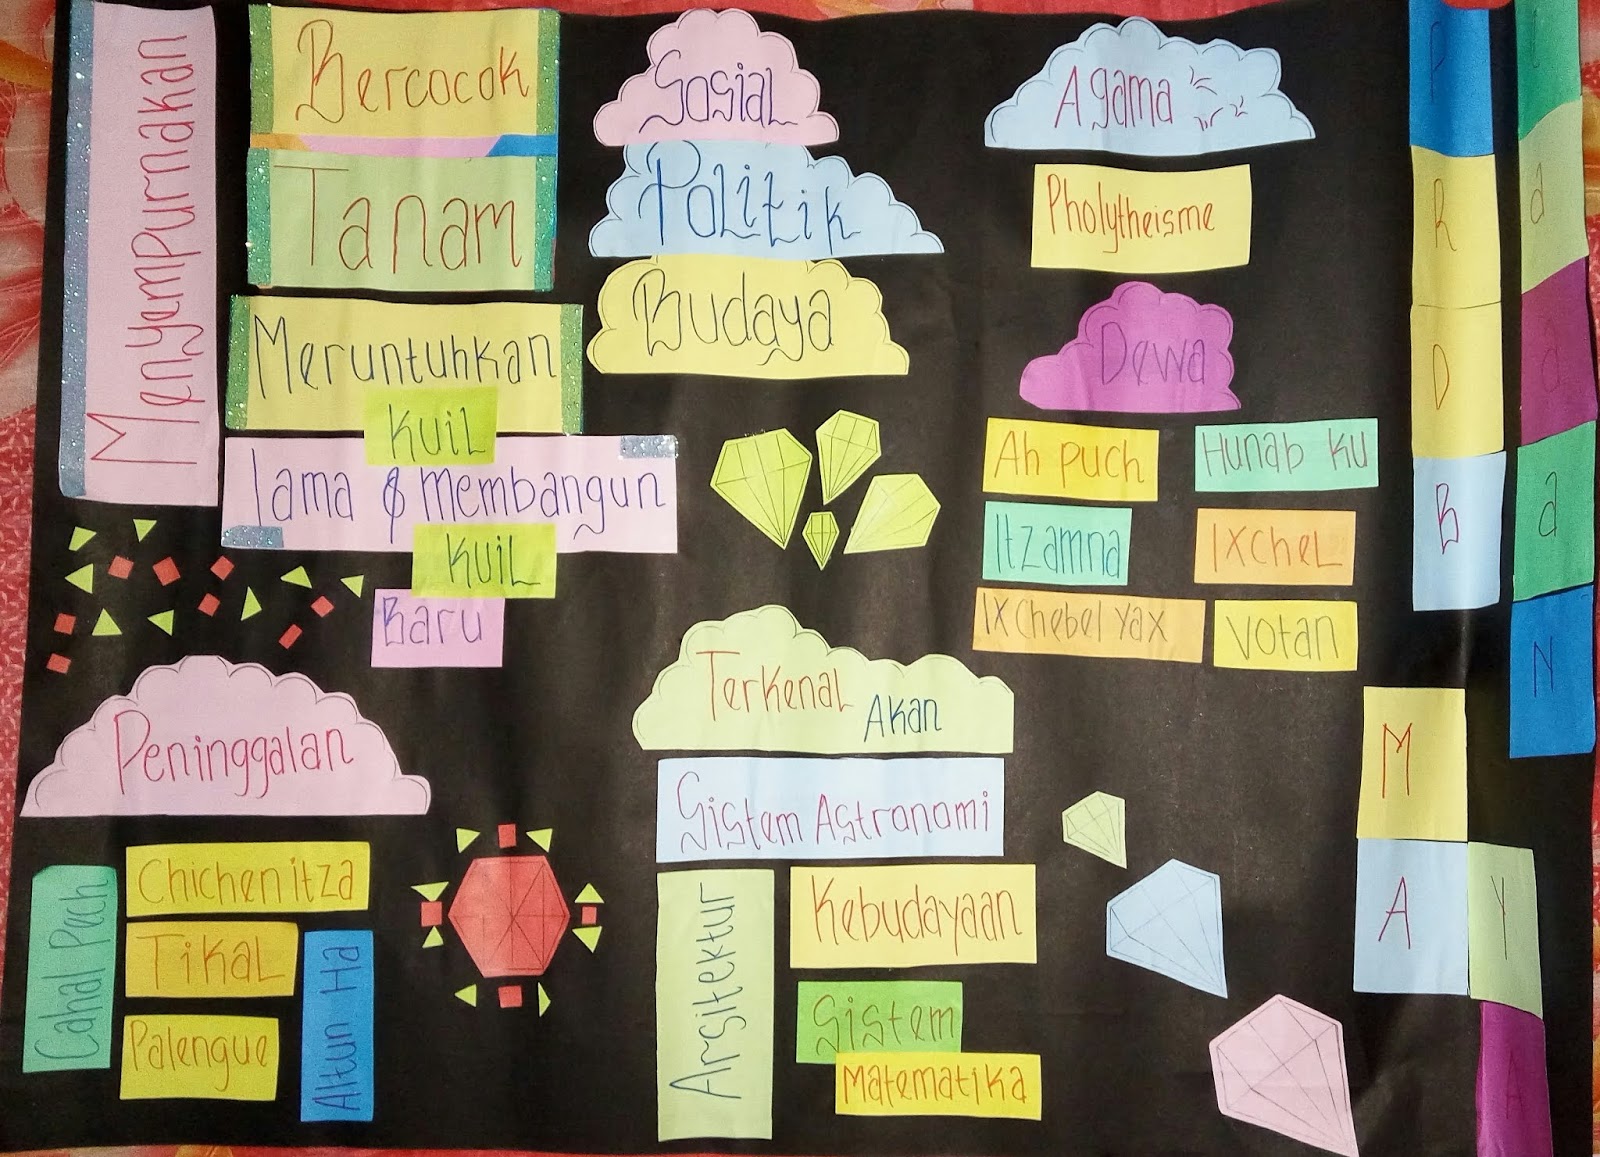 Menyempurnakan
Bercocok
Tanam
Meruntuhkan
Kuil
lama & Membangun
Kuil
Baru
Sosial
Politik
Budaya
Agama
Pholytheisme
Dewa
Ah puch
Hunab Ku
Itzamna
IXchel
IX Chebel Yax
Votan
PeRaDaBaN
MAYA
Peninggalan
Cahal Pech
Chichen itza
Tikal
Palengue
Altun Ha
Terkenal Akan
Sistem Astronomi
Arsitektur
Kebudayaan
Sistem
Matematika